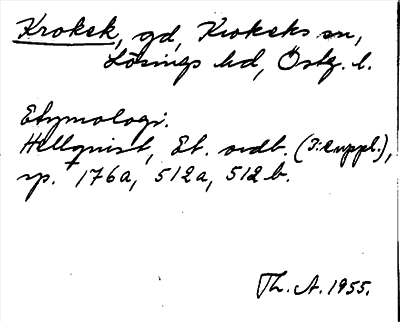 Krokek, gd, Krokeks sn,
Lösings hd, Östg. l.
Etymologi.
Hellquist, Et. ordb. (I: suppl.),
sp. 176a, 512a, 512b.
Th. A. 1955.